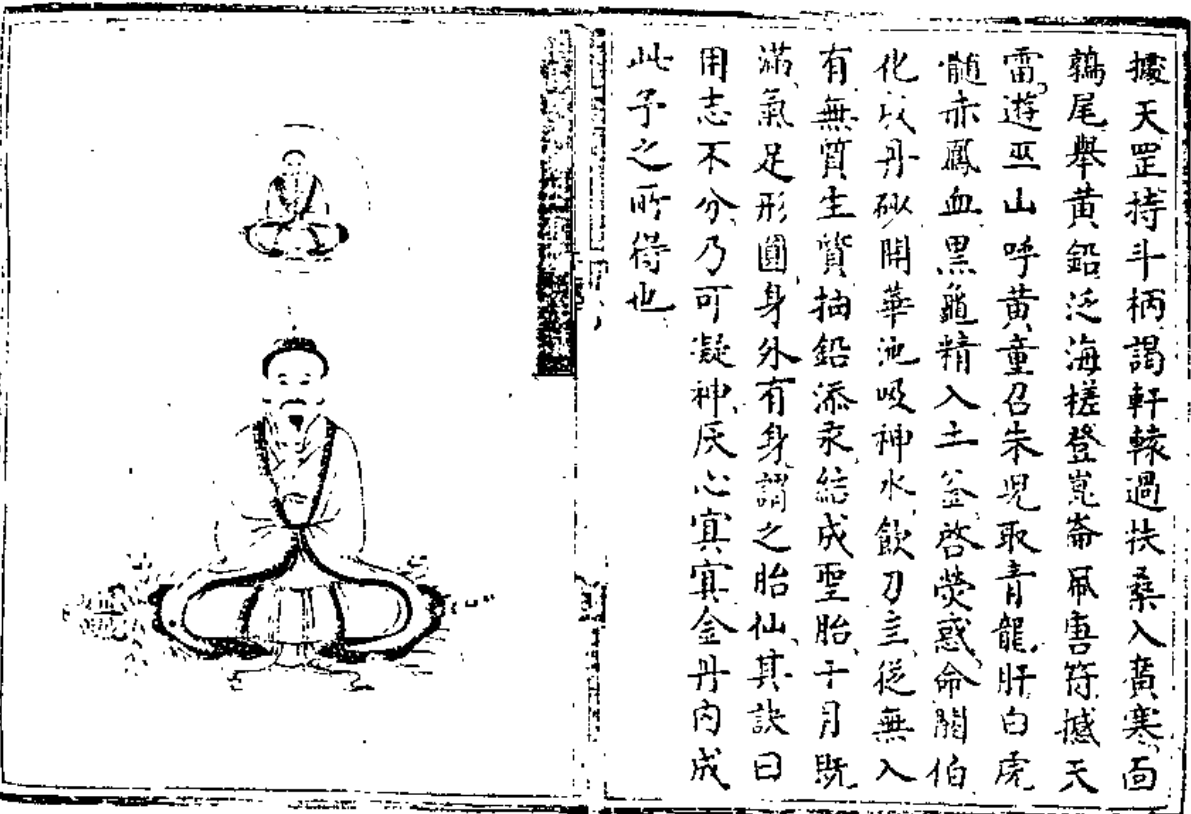 據天罡持斗柄謁軒轅過扶桑入廣寒面
鶉尾舉黃鉛泛海槎登崑崙佩唐符撼天
雷遊巫山呼黃童召朱児取青龍肝白虎
髓赤鳳血黑龜精入土釜啓熒惑命閼伯
化以丹砂開華池吸神水飲刀圭從無入
有無質生質抽鉛添汞結成聖胎十月既
滿氣足形圓身外有身謂之胎仙其訣曰
用志不分乃可凝神灰心㝠㝠金丹內成
此予之所得也